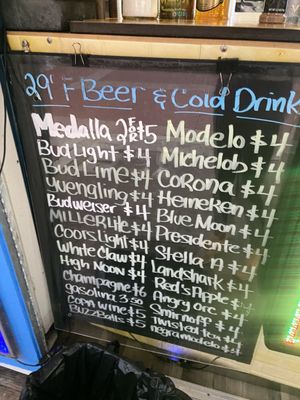 29° F Beer & Cold Drink
Medalla 2 FOR $5
Bud Light $4
Bud Lime $4
Yuengling $4
Budweiser $4
MILLER Lite $4
Coors Light $4
White Claw $4
High Noon $4
Champagne $6
gasolina 3.50
Copa wine $5
BuzzBalls $5
Modelo $4
Michelob $4
CORONA $4
Heineken $4
Blue Moon $4
Presidente $4
Stella A $4
Landshark $4
Red's Apple $4
Angry Orc $4
Smirnoff $4
Twisted tea $4
negra modelo $4